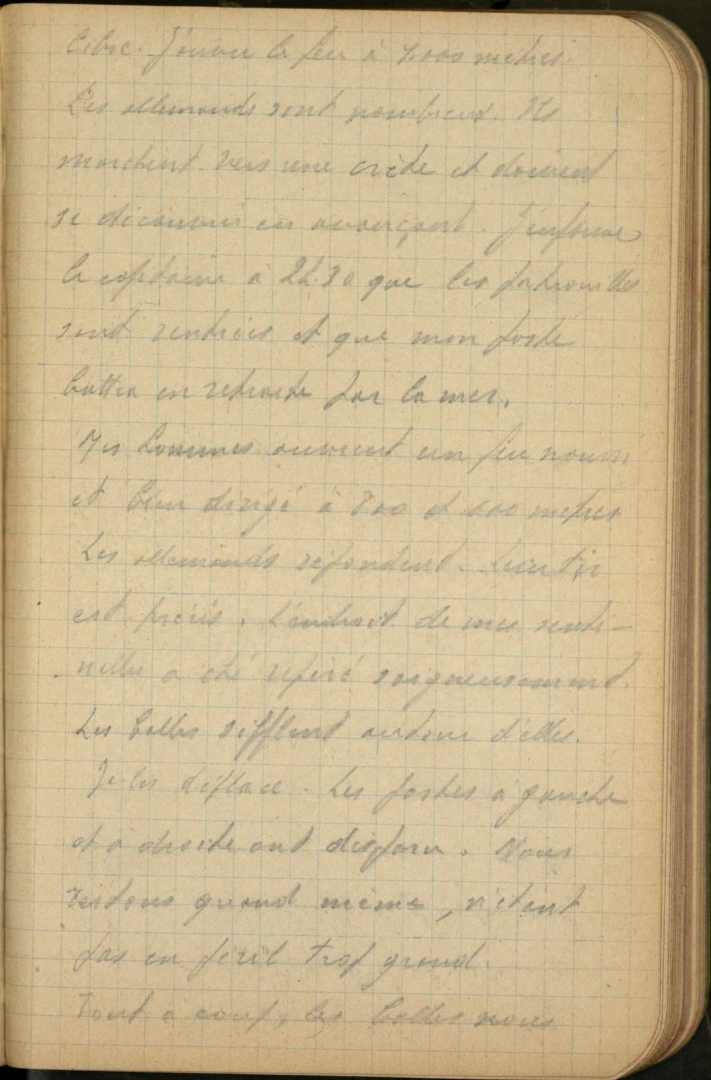 libre. J'ouvre le feu à 1.000 mètres.
Les allemands sont nombreux. Ils
marchent vers une crête et doivent
se découvrir en avançant. J'informe
le capitaine à 2h30 que les patrouilles
sont rentrées et que mon poste
battra en retraite par la mer.
Mes hommes ouvrent un feu nourri
et bien dirigé à 800 et 600 mètres
Les allemands répondent. Leur tir
est précis. L'endroit de mes senti-
nelles a été repéré soigneusement.
Les balles sifflent autour d'elles.
Je les déplace. Les postes à gauche
et à droite ont disparu. Nous
restons quand même, n'étant
pas en péril trop grand.
Tout à coup, les balles nous